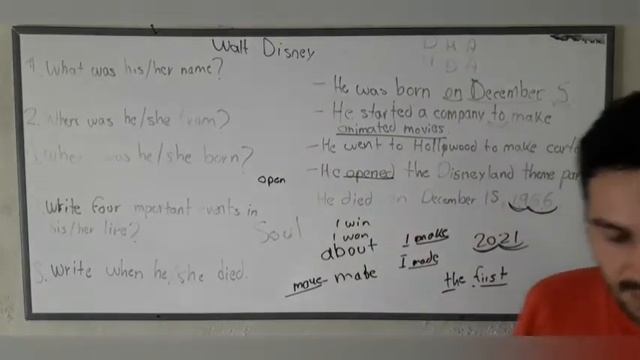 Walt Disney
1. What was his/her name?
2. Where was he/she from?
3. When was he/she born?
Write four important events in
his/her life?
5. Write when he she died.
- He was born on December 5
- He started a company to make
animated movies.
- He went to Hollywood to make
- He opened the Disneyland theme
open
He died on December 15, 1966
Soul
I win
I won
about
move - made
I make
I made
2021
the first